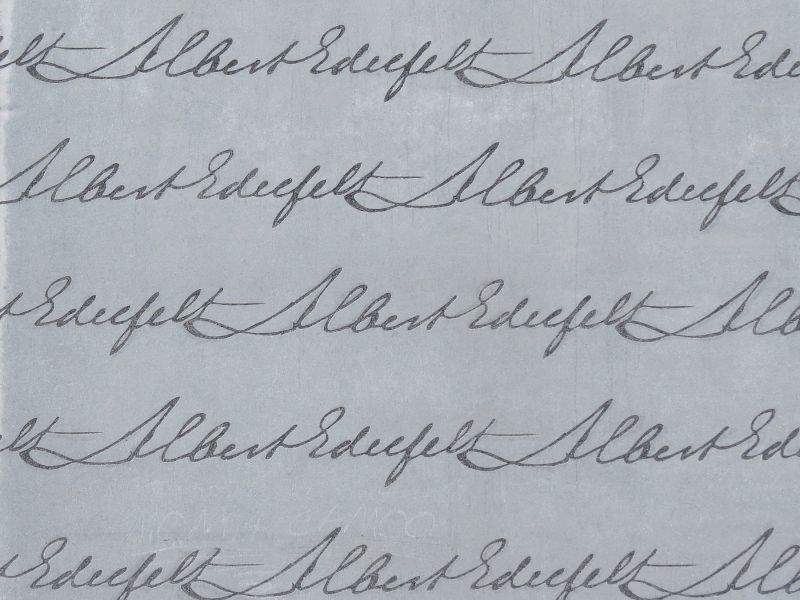 elt Albert Edelfelt Albert Ede
Albert Edelfelt Albert Edelfelt
t Edelfelt Albert Edelfelt Alb
elt Albert Edelfelt Albert Ed
t Edelfelt Albert Edelfelt Alb